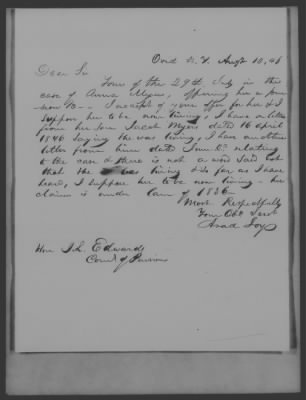 Ovid N. Y. Augt 10, 46
Dear Sir
Yours of the 29th July in the
case of Anna Myers, offering her a pen-
sion
I accept of your offer for her & I
suppose her to be now living, I have a letter
from her Son Jacob Myers dated 16 April
1846 Saying she was living, I have another
letter from him dated June relating
to the case & there is not a word Said but
that she was living & as far as I have
heard, I suppose her to be now living - her
claim is under law of 1836
Most Respectfully
Your Obt Servt
Asad
Hon J. L. Edwards
Comr of Pensions